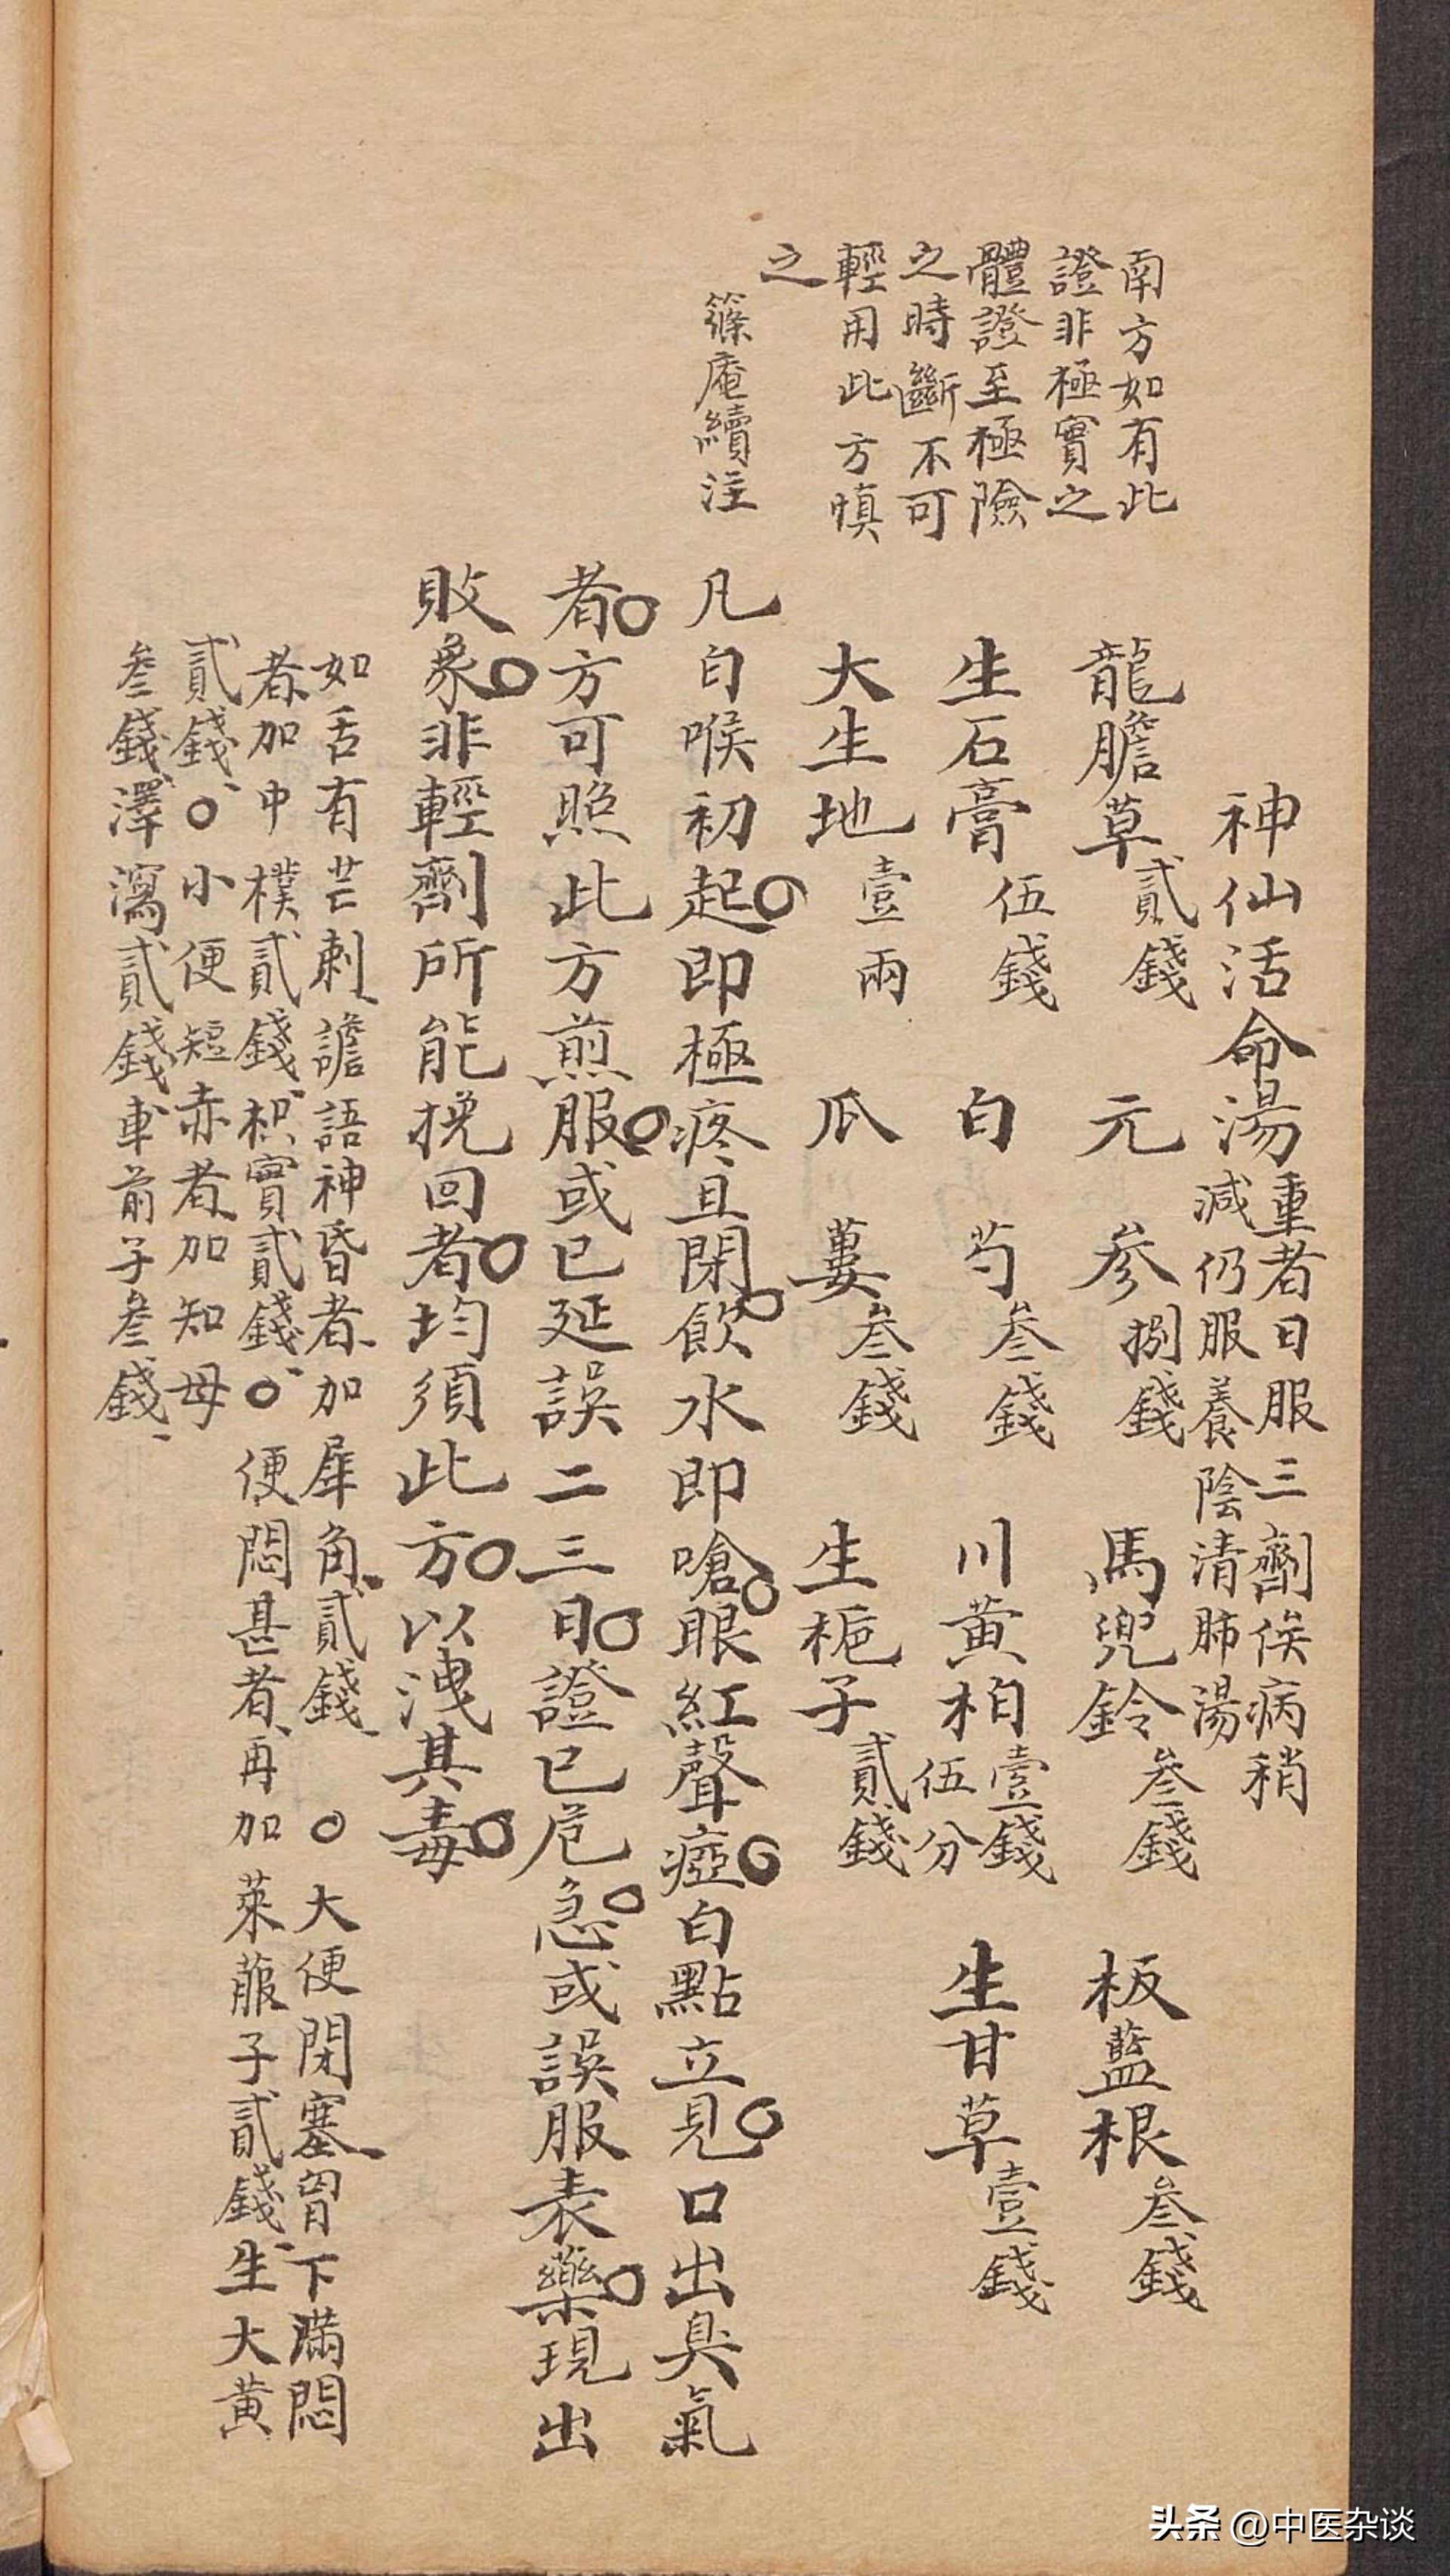 神仙活命湯 重者日服三劑俟病稍
減仍服養陰清肺湯
龍膽草 貳錢 元參 捌錢 馬兜鈴 叁錢 板藍根 叁錢
生石膏 伍錢 白芍 叁錢 川黄柏 壹錢伍分 生甘草 壹錢
大生地 壹兩 瓜蔞 叁錢 生梔子 貳錢
南方如有此
證非極實之
體證至極險
之時斷不可
輕用此方慎
之
篠庵續注
凡白喉初起○即極疼且閉○飲水即嗆○眼紅聲瘂○白點立見○口出臭氣
者○方可照此方煎服○或已延誤二三日○證已危急○或誤服表藥○現出
敗象○非輕劑所能挽回者○均須此方○以洩其毒○
如舌有芒刺、譫語神昏者、加犀角、貳錢、○大便閉塞、胃下滿悶
者、加中樸貳錢、枳實貳錢、○便悶甚者、再加萊菔子貳錢、生大黄
貳錢、○小便短赤者、加知母
叁錢、澤瀉貳錢、車前子叁錢、
头条 @中医杂谈